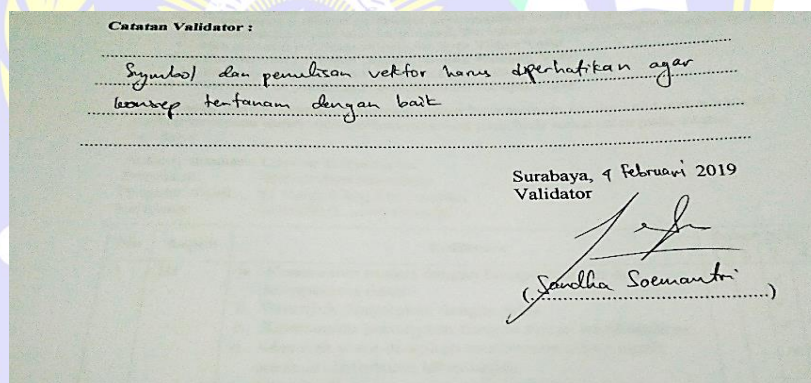 Catatan Validator :
Symbol dan penulisan vektor harus diperhatikan agar
konsep tertanam dengan baik
Surabaya, 4 Februari 2019
Validator
(Sandha Soemantri)